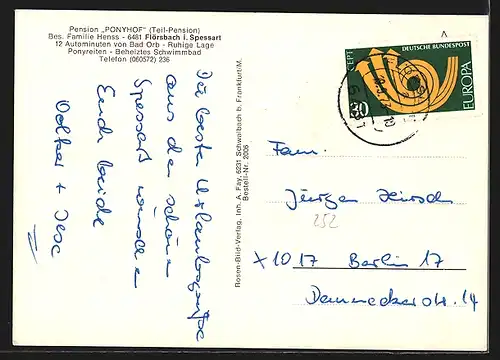 Pension „PONYHOF" (Teil-Pension)
Bes. Familie Henss - 6481 Flörsbach i. Spessart
12 Autominuten von Bad Orb - Ruhige Lage
Ponyreiten - Beheiztes Schwimmbad
Telefon (060572) 236
Die besten Urlaubsgrüße
aus dem schönen
Spessart
Euch beide
+ Ilse
Rosen-Bild-Verlag, Inh. A. Fay, 6231 Schwalbach b. Frankfurt/M.
Bestell-Nr. 2006
CEPT
DEUTSCHE BUNDESPOST
EUROPA
Fam.
Jürgen Hirsch
252
X 1017 Berlin 17
Dannecker str. 14